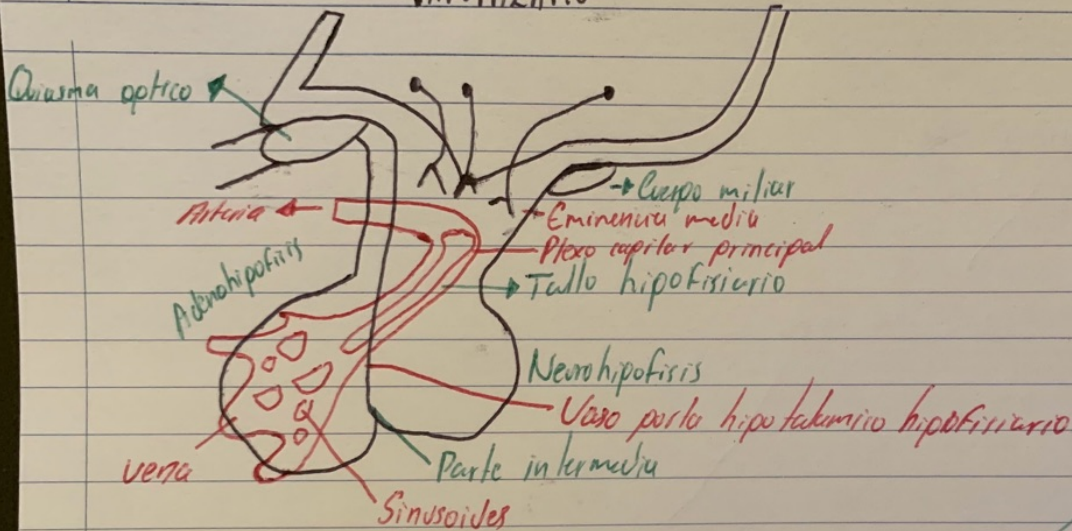 Quiasma optico
Cuerpo miliar
Arteria
Eminencia media
Plexo capilar principal
Adenohipofisis
Tallo hipofisiario
Neurohipofisis
Vaso porta hipotalamico hipofisiario
vena
Parte intermedia
Sinusoides